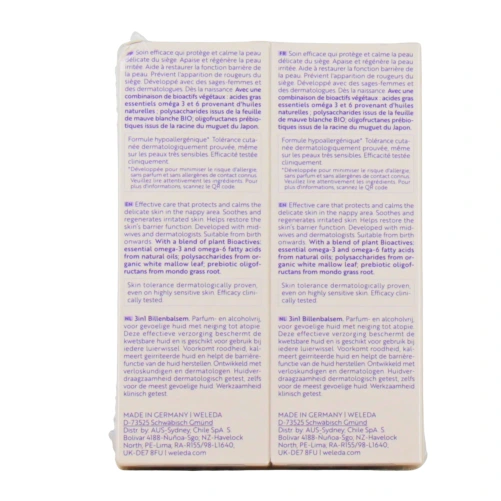 FR Soin efficace qui protège et calme la peau
délicate du siège. Apaise et régénère la peau
irritée. Aide à restaurer la fonction barrière de
la peau. Prévient l'apparition de rougeurs du
siège. Développé avec des sages-femmes et
des dermatologues. Dès la naissance. Avec une
combinaison de bioactifs végétaux: acides gras
essentiels oméga 3 et 6 provenant d'huiles
naturelles; polysaccharides issus de la feuille
de mauve blanche BIO; oligofructanes prébio-
tiques issus de la racine du muguet du Japon.
Formule hypoallergénique* Tolérance cuta-
née dermatologiquement prouvée, même
sur les peaux très sensibles. Efficacité testée
cliniquement.
*Développée pour minimiser le risque d'allergie,
sans parfum et sans allergènes de contact connus.
Veuillez lire attentivement les instructions. Pour
plus d'informations, scannez le QR code.
EN Effective care that protects and calms the
delicate skin in the nappy area. Soothes and
regenerates irritated skin. Helps restore the
skin's barrier function. Developed with mid-
wives and dermatologists. Suitable from birth
onwards. With a blend of plant Bioactives:
essential omega-3 and omega-6 fatty acids
from natural oils; polysaccharides from or-
ganic white mallow leaf; prebiotic oligof-
ructans from mondo grass root.
Skin tolerance dermatologically proven,
even on highly sensitive skin. Efficacy clini-
cally tested.
NL 3in1 Billenbalsem. Parfum- en alcoholvrij,
voor gevoelige huid met neiging tot atopie.
Deze effectieve verzorging beschermt de
kwetsbare huid en is geschikt voor gebruik bij
iedere luierwissel. Voorkomt roodheid, kal-
meert geïrriteerde huid en helpt de barrière-
functie van de huid herstellen. Ontwikkeld met
verloskundigen en dermatologen. Huidver-
draagzaamheid dermatologisch getest, zelfs
voor de meest gevoelige huid. Werkzaamheid
klinisch getest.
MADE IN GERMANY | WELEDA
D-73525 Schwäbisch Gmünd
Distr. by: AUS-Sydney, Chile SpA. S.
Bolívar 4188-Ñuñoa-Sgo, NZ-Havelock
North, PE-Lima, RA-R155/98-L1640,
UK-DE7 8FU | weleda.com
FR Soin efficace qui protège et calme la peau
délicate du siège. Apaise et régénère la peau
irritée. Aide à restaurer la fonction barrière de
la peau. Prévient l'apparition de rougeurs du
siège. Développé avec des sages-femmes et
des dermatologues. Dès la naissance. Avec une
combinaison de bioactifs végétaux: acides gras
essentiels oméga 3 et 6 provenant d'huiles
naturelles; polysaccharides issus de la feuille
de mauve blanche BIO; oligofructanes prébio-
tiques issus de la racine du muguet du Japon.
Formule hypoallergénique* Tolérance cuta-
née dermatologiquement prouvée, même
sur les peaux très sensibles. Efficacité testée
cliniquement.
*Développée pour minimiser le risque d'allergie,
sans parfum et sans allergènes de contact connus.
Veuillez lire attentivement les instructions. Pour
plus d'informations, scannez le QR code.
EN Effective care that protects and calms the
delicate skin in the nappy area. Soothes and
regenerates irritated skin. Helps restore the
skin's barrier function. Developed with mid-
wives and dermatologists. Suitable from birth
onwards. With a blend of plant Bioactives:
essential omega-3 and omega-6 fatty acids
from natural oils; polysaccharides from or-
ganic white mallow leaf; prebiotic oligof-
ructans from mondo grass root.
Skin tolerance dermatologically proven,
even on highly sensitive skin. Efficacy clini-
cally tested.
NL 3in1 Billenbalsem. Parfum- en alcoholvrij,
voor gevoelige huid met neiging tot atopie.
Deze effectieve verzorging beschermt de
kwetsbare huid en is geschikt voor gebruik bij
iedere luierwissel. Voorkomt roodheid, kal-
meert geïrriteerde huid en helpt de barrière-
functie van de huid herstellen. Ontwikkeld met
verloskundigen en dermatologen. Huidver-
draagzaamheid dermatologisch getest, zelfs
voor de meest gevoelige huid. Werkzaamheid
klinisch getest.
MADE IN GERMANY | WELEDA
D-73525 Schwäbisch Gmünd
Distr. by: AUS-Sydney, Chile SpA. S.
Bolívar 4188-Ñuñoa-Sgo, NZ-Havelock
North, PE-Lima, RA-R155/98-L1640,
UK-DE7 8FU | weleda.com